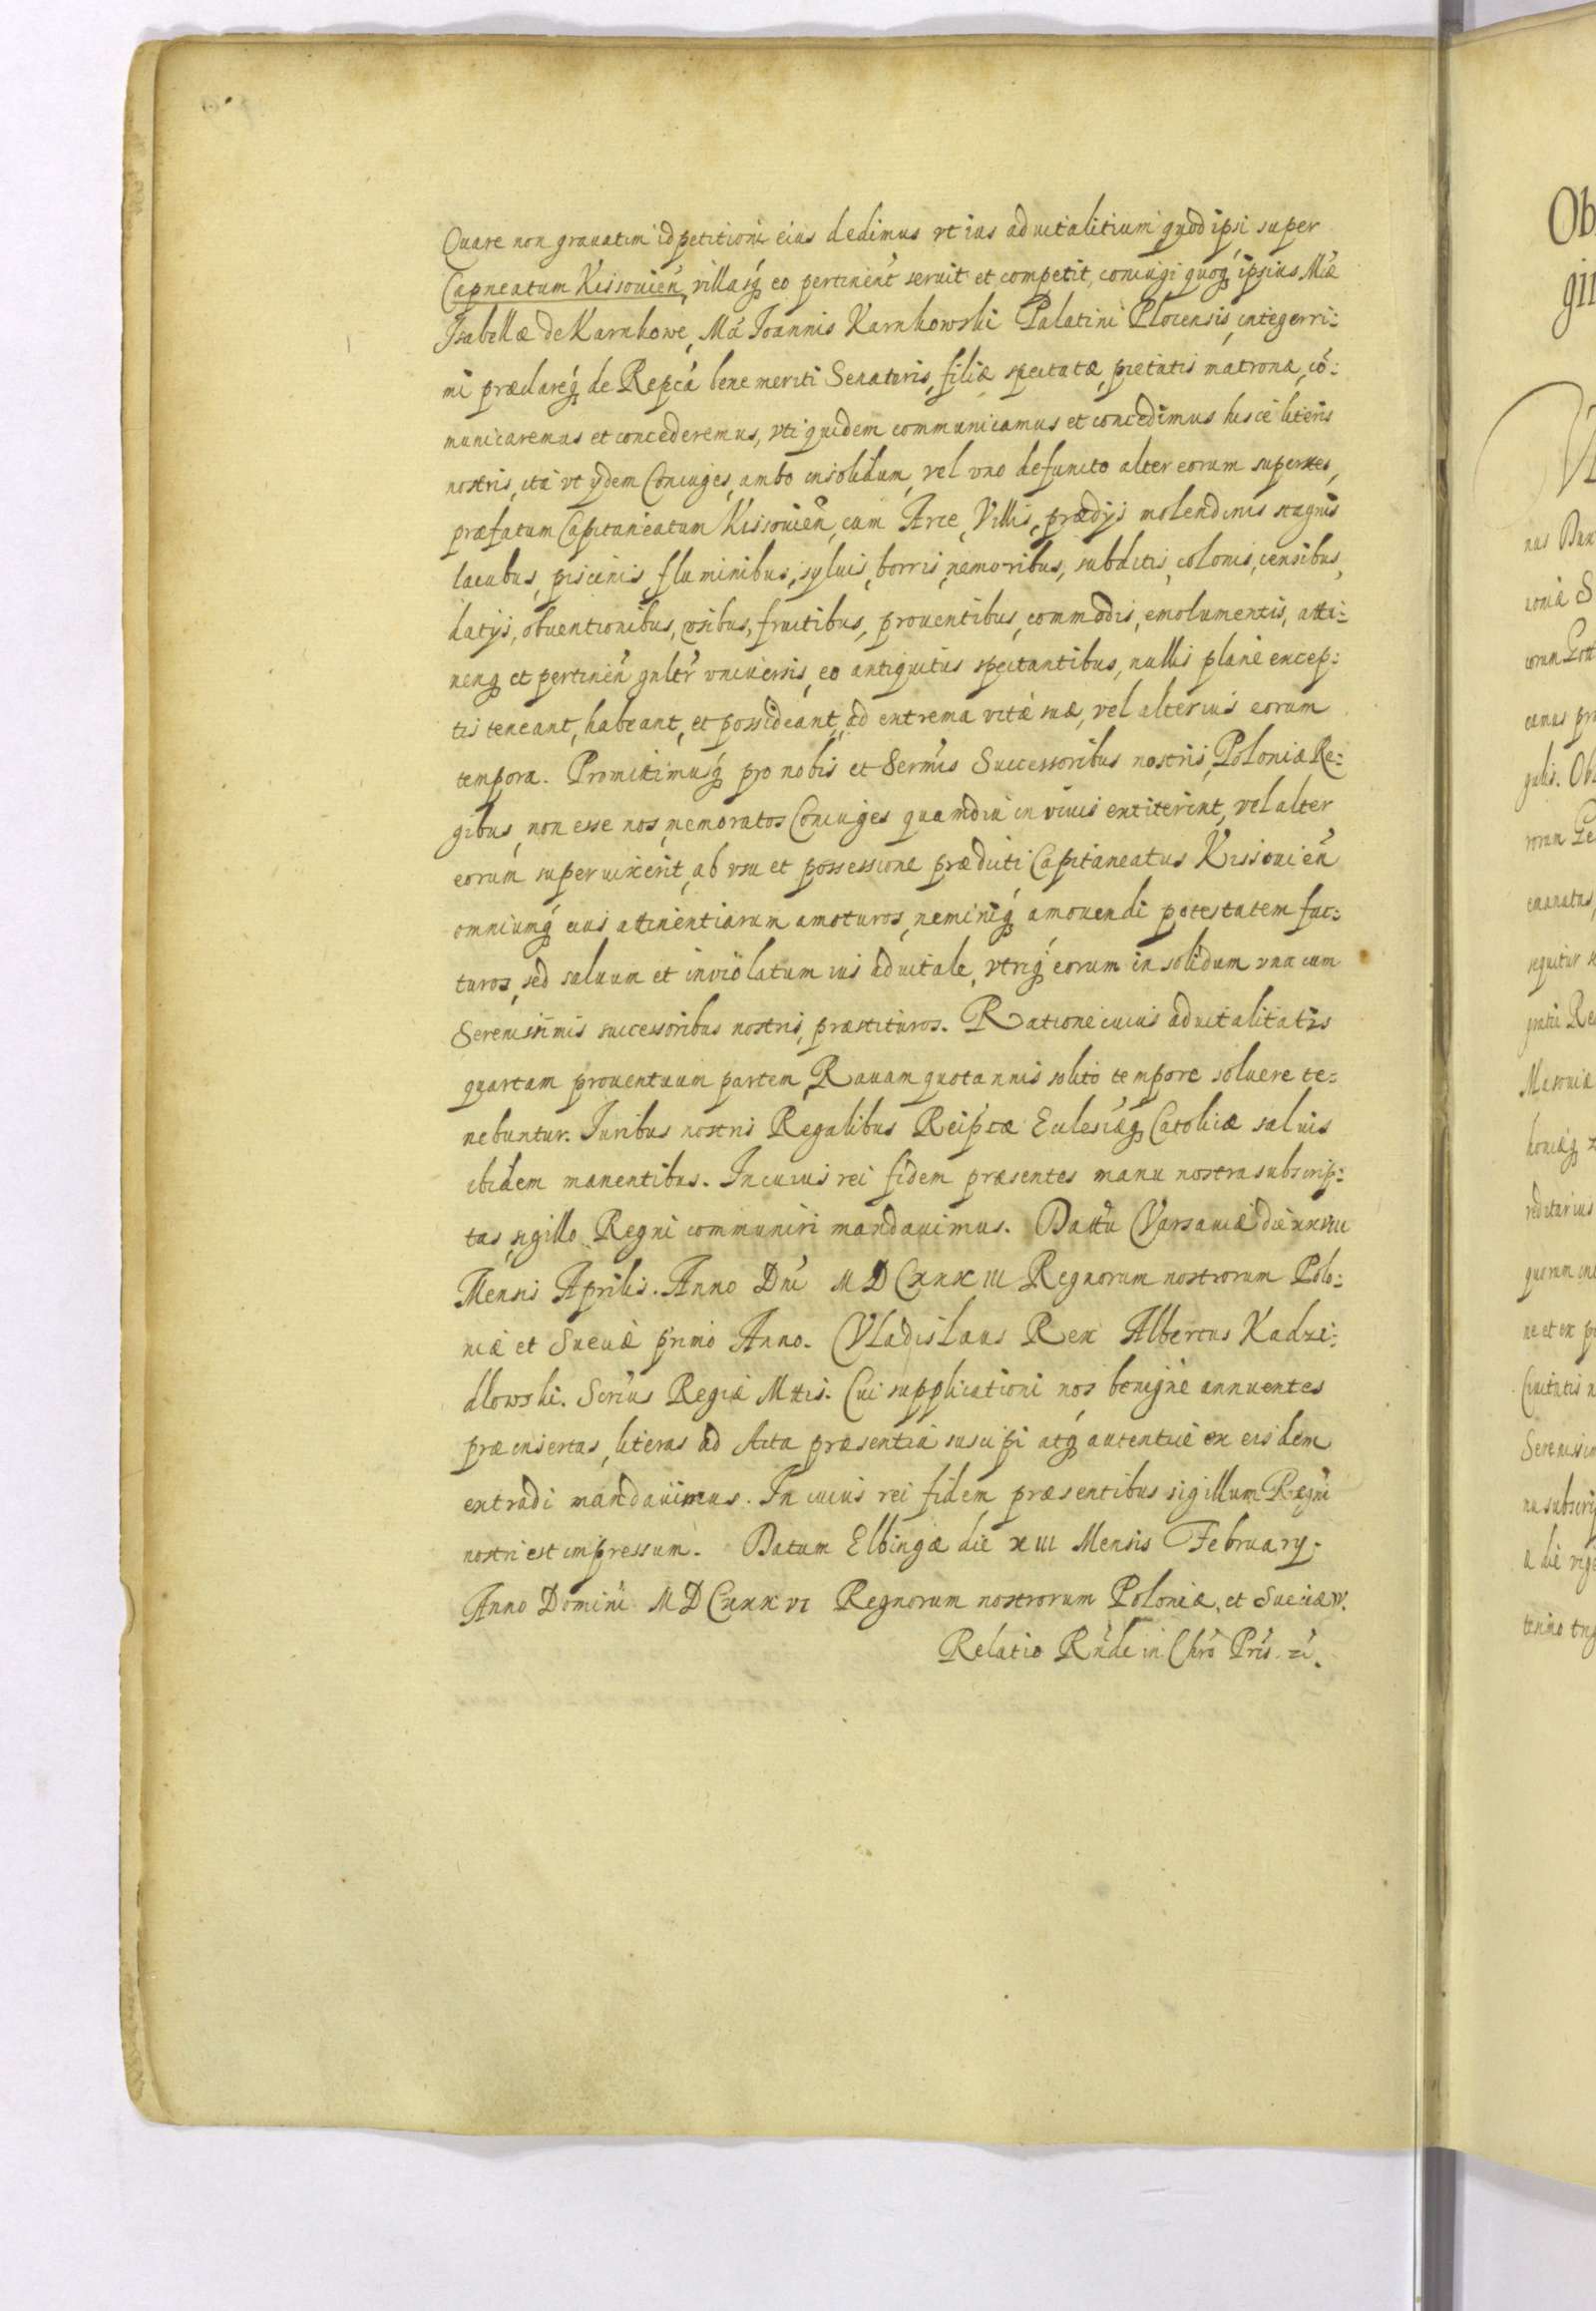 Quare non grauatim id petitioni eius dedimus vt ius aduitalitium quod ipsi super
Capneatum Kissouień, villasq́ eo pertinen̄t seruit et competit, coniugi quoq́ ipsius Mǽ
Isabellæ de Karnkowe, Mći Ioannis Karnkowski Palatini Plocensis, integerri:
mi præclareq́ de Repcá bene meriti Senatoris, filiæ spectatæ, pietatis matronæ, cō:
municaremus et concederemus, vti quidem communicamus et concedimus hisce literis
nostris, ita vt ijdem Coniuges, ambo insolidum, vel vno defuncto alter eorum superstes,
præfatum Capitaneatum Kissouień, cum Arce, Villis, prædijs molendinis stagnis
lacubus, piscinis, fluminibus, syluis, borris, nemoribus, subditis, colonis, censibus,
datijs, obuentionibus, vsibus, fructibus, prouentibus, commodis, emolumentis, atti:
nenq et pertineń gnlt́r vniuersis, eo antiquitus spectantibus, nullis planè excep:
tis teneant, habeant, et possideant, ad extrema vitæ suæ, vel alterius eorum
tempora. Promittimusq́ pro nobis et Sermis Successoribus nostris, Poloniæ Re:
gibus, non esse nos, memoratos Coniuges quamdiu in viuis extiterint, vel alter
eorum superuixerit, ab vsu et possessione prædicti Capitaneatus Kissouień
omniumq́ eius attinentiarum amoturos, neminiq́ amouendi potestatem fac:
turos, sed saluum et inviolatum ius aduitale, vtriq́ eorum in solidum vna cum
Serenissimis successoribus nostris, præstituros. Ratione cuius aduitalitatis
quartam prouentuum partem, Rauam quotannis solito tempore soluere te:
nebuntur. Iuribus nostris Regalibus Reipcæ Eclesiæq́ Catolicæ saluis
ibidem manentibus. In cuius rei fidem præsentes manu nostra subscrip:
tas, sigillo Regni communiri mandauimus. Dattū Varsauiæ die xxviii
Mensis Aprilis. Anno Dni MDCxxxiii Regnorum nostrorum Polo:
niæ et Sueciæ primo Anno. Vladislaus Rex Albertus Kadzi:
dlowski. Scrius Regiæ Mttis. Cui supplicationi nos benignè annuentes
præinsertas, literas ad Acta præsentia suscipi atq́ autenticè ex eisdem
extradi mandauimus. In cuius rei fidem præsentibus sigillum Regni
nostri est impressum. Datum Elbingæ die xiii Mensis February.
Anno Domini MDCxxxvi Regnorum nostrorum Poloniæ, et Sueciæ iv.
Relatio Rńdi in Chrō Pris. zć.
Ob
gi